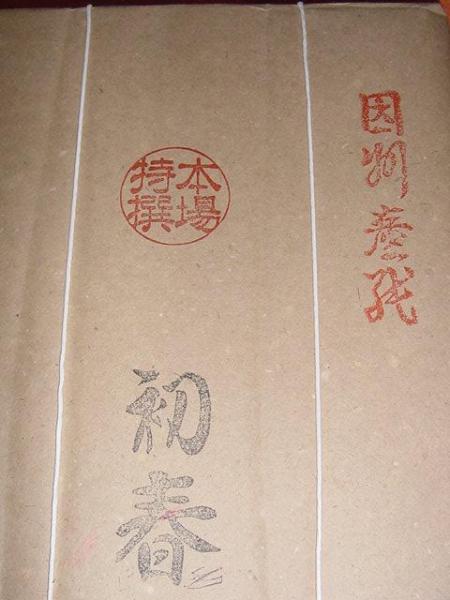 因州産紙
本場
特撰
初春